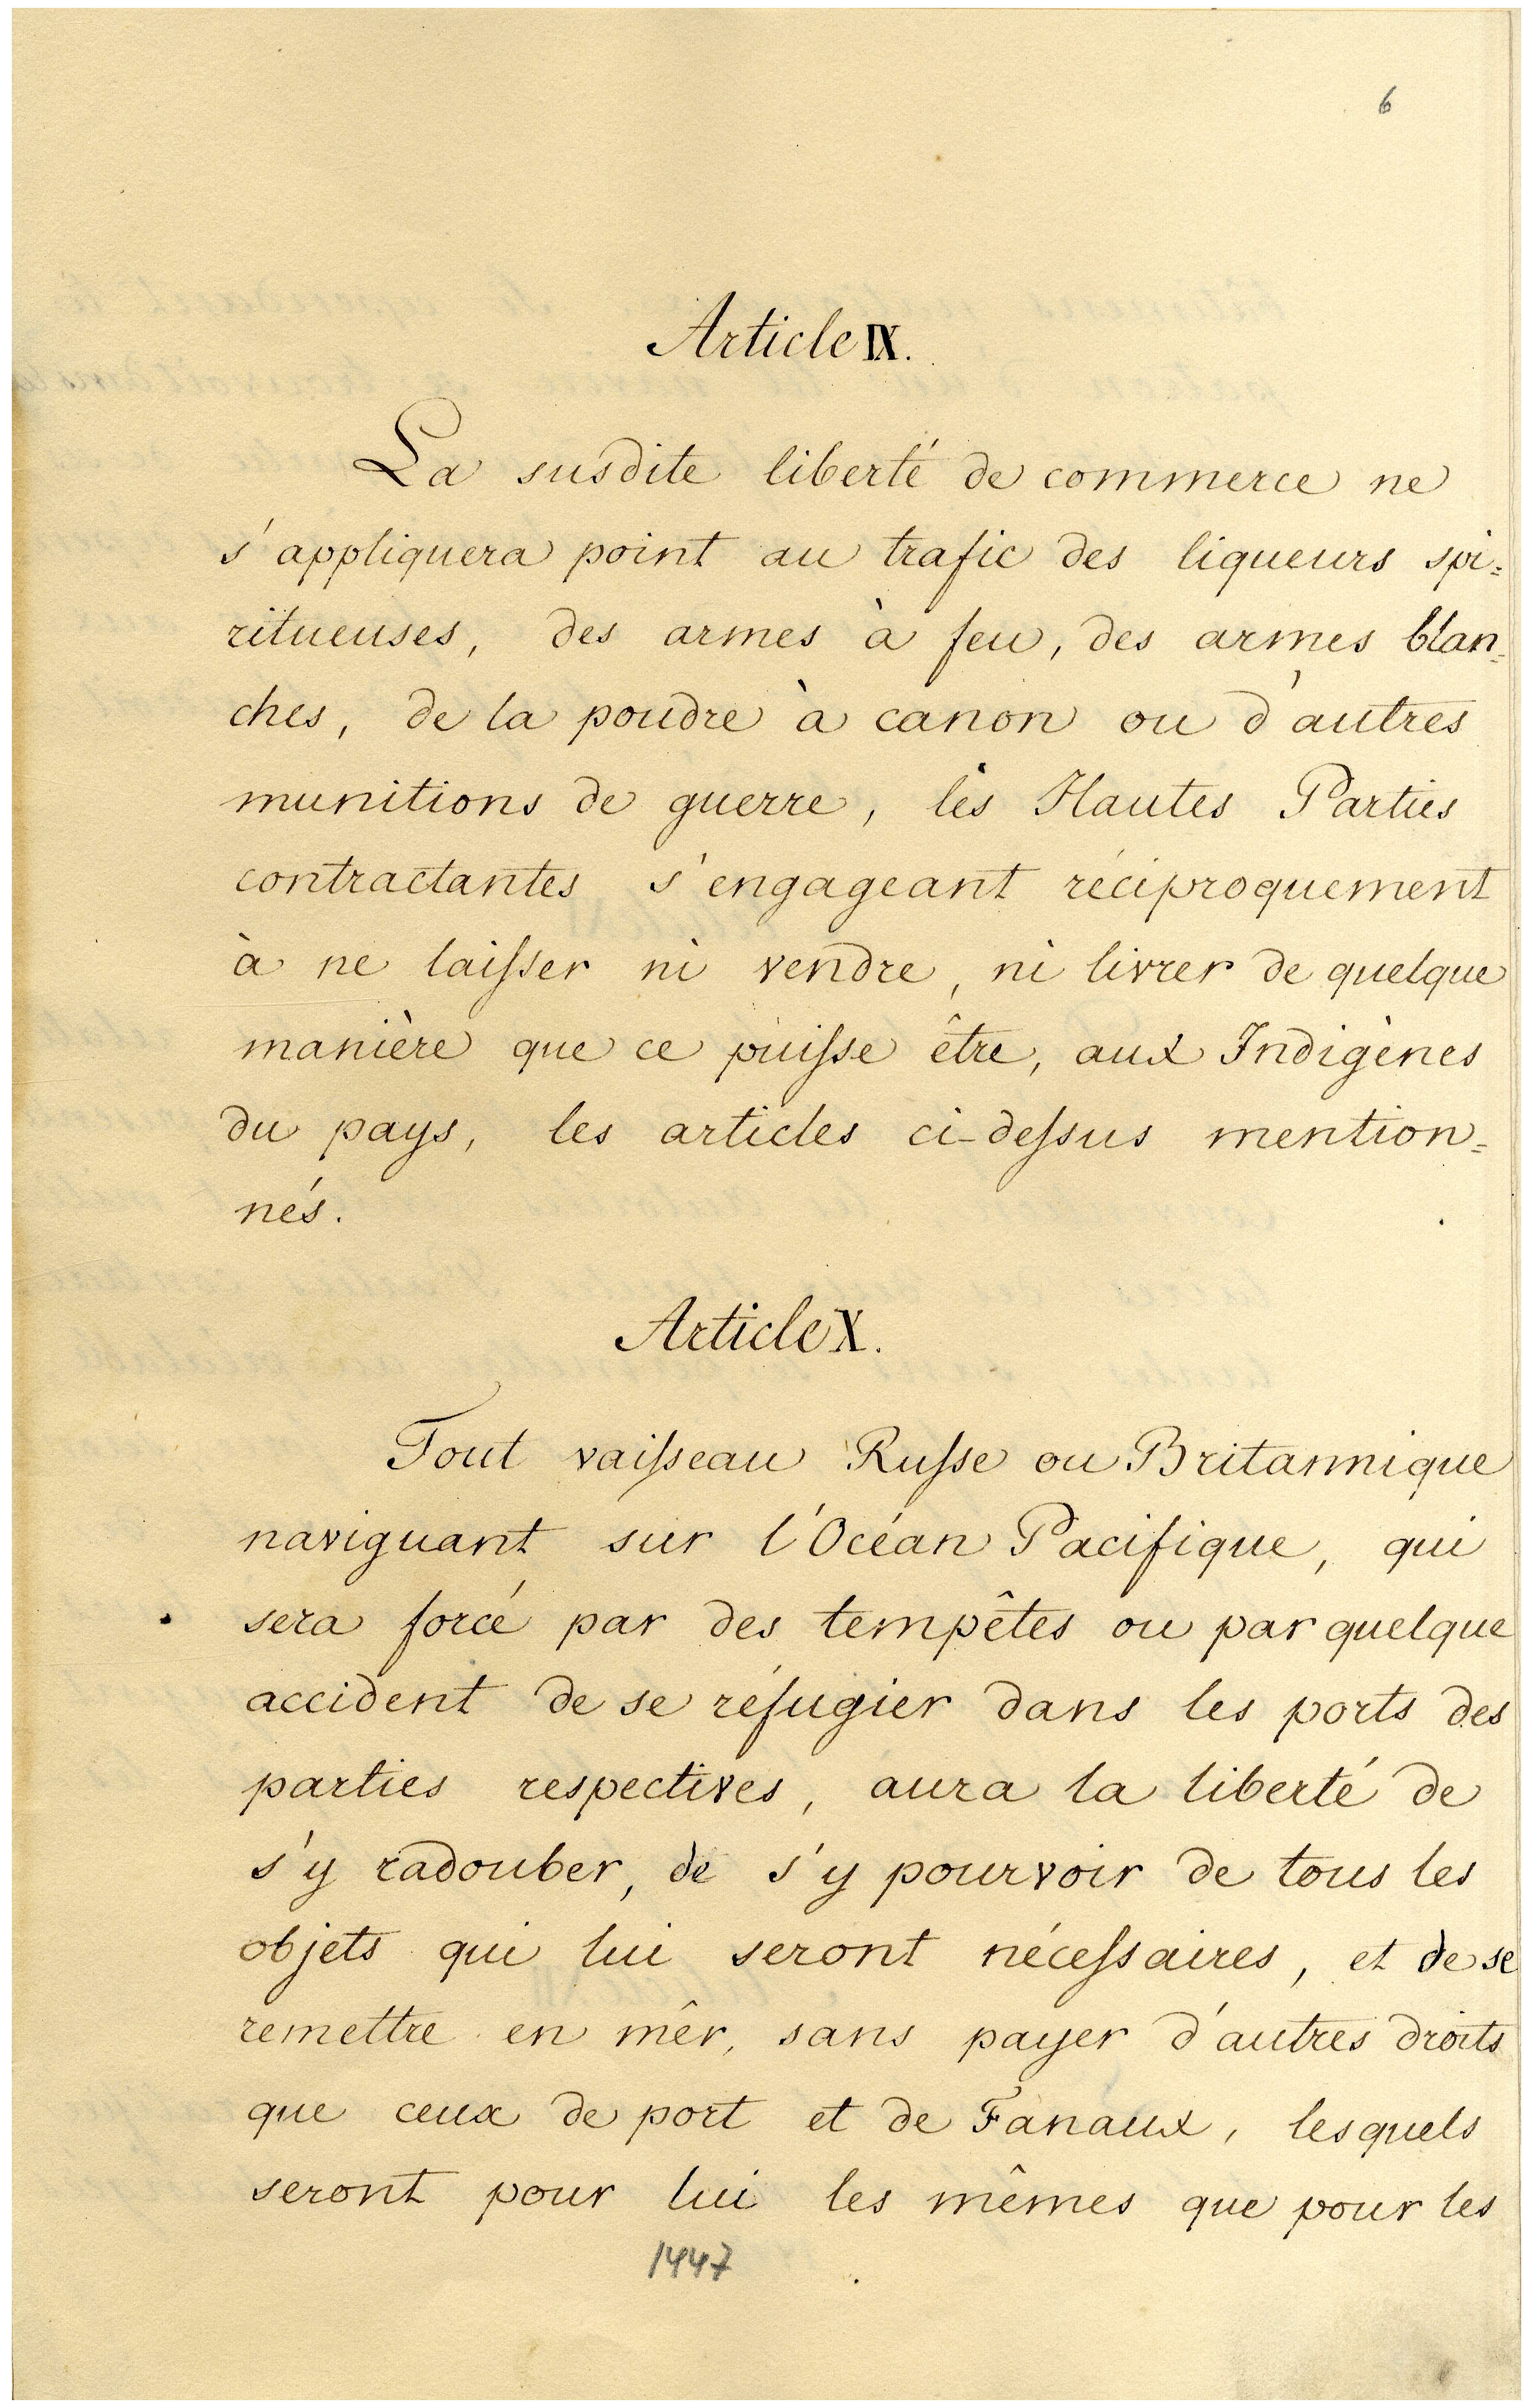 6
Article IX.
La susdite liberté de commerce ne
s'appliquera point au trafic des liqueurs spi=
ritueuses, des armes à feu, des armes blan=
ches, de la poudre à canon ou d'autres
munitions de guerre, les Hautes Parties
contractantes s'engageant réciproquement
à ne laisser ni vendre, ni livrer de quelque
manière que ce puisse être, aux Indigènes
du pays, les articles ci-dessus mention=
nés.
Article X.
Tout vaisseau Russe ou Britannique
naviguant sur l'Océan Pacifique, qui
sera forcé par des tempêtes ou par quelque
accident de se réfugier dans les ports des
parties respectives, aura la liberté de
s'y radouber, de s'y pourvoir de tous les
objets qui lui seront nécessaires, et de se
remettre en mêr, sans payer d'autres droits
que ceux de port et de Fanaux, lesquels
seront pour lui les mêmes que pour les
1447